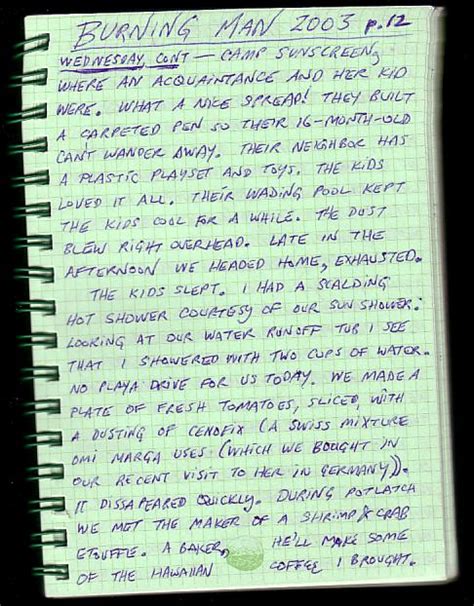 BURNING MAN 2003 p.12
WEDNESDAY, CONT — CAMP SUNSCREEN,
WHERE AN ACQUAINTANCE AND HER KID
WERE. WHAT A NICE SPREAD! THEY BUILT
A CARPETED PEN SO THEIR 16-MONTH-OLD
CAN'T WANDER AWAY. THEIR NEIGHBOR HAS
A PLASTIC PLAYSET AND TOYS. THE KIDS
LOVED IT ALL. THEIR WADING POOL KEPT
THE KIDS COOL FOR A WHILE. THE DUST
BLEW RIGHT OVERHEAD. LATE IN THE
AFTERNOON WE HEADED HOME, EXHAUSTED.
THE KIDS SLEPT. I HAD A SCALDING
HOT SHOWER COURTESY OF OUR SUN SHOWER.
LOOKING AT OUR WATER RUNOFF TUB I SEE
THAT I SHOWERED WITH TWO CUPS OF WATER.
NO PLAYA DRIVE FOR US TODAY. WE MADE A
PLATE OF FRESH TOMATOES, SLICED, WITH
A DUSTING OF CENOFIX (A SWISS MIXTURE
OMI MARGA USES (WHICH WE BOUGHT IN
OUR RECENT VISIT TO HER IN GERMANY)).
IT DISSAPEARED QUICKLY. DURING POTLATCH
WE MET THE MAKER OF A SHRIMP & CRAB
ETOUFFLE. A BAKER, HE'LL MAKE SOME
OF THE HAWAIIAN COFFEE I BROUGHT.